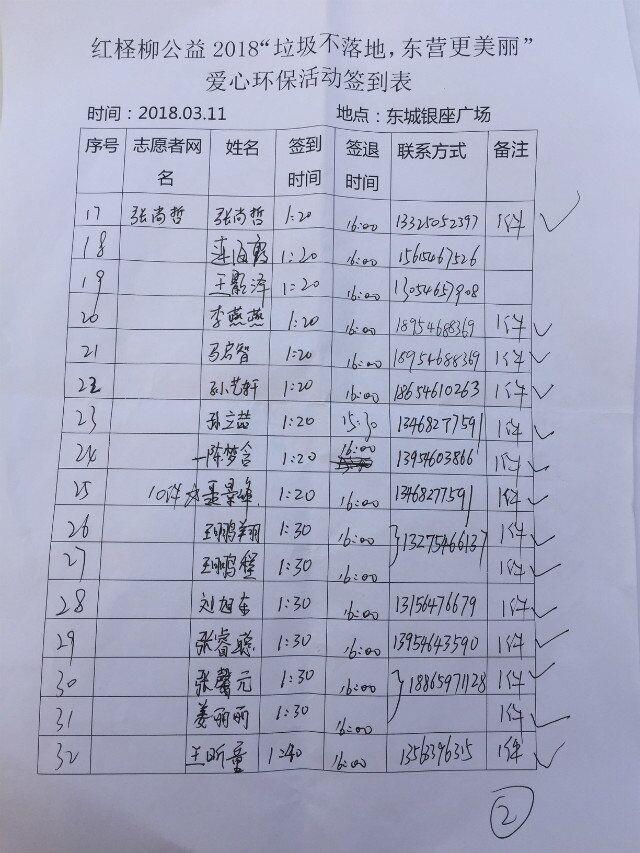 红柽柳公益 2018“垃圾不落地，东营更美丽”
爱心环保活动签到表
时间：2018.03.11 地点：东城银座广场
序号 志愿者网名 姓名 签到时间 签退时间 联系方式 备注
17 张尚哲 张尚哲 1:20 16:00 13325052397 1件
18 1:20 16:00 15615467526
19 王影泽 1:20 16:00 13054657908
20 李燕燕 1:20 16:00 18954688369 1件
21 马启智 1:20 16:00 18954688369 1件
22 孙艺轩 1:20 16:00 18654610263 1件
23 孙立喆 1:20 15:30 13468277591 1件
24 陈梦含 1:20 16:00 13954603866 1件
25 10件 1:20 16:00 1346827759 1件
26 王鹏翔 1:30 16:00 13275466137 1件
27 王鹏程 1:30 16:00 1件
28 刘旭东 1:30 16:00 13156476679 1件
29 张睿聪 1:30 16:00 13954643590 1件
30 张馨元 1:30 16:00 18865971128 1件
31 姜丽丽 1:30 16:00 1件
32 王昕童 1:40 16:00 1件
2